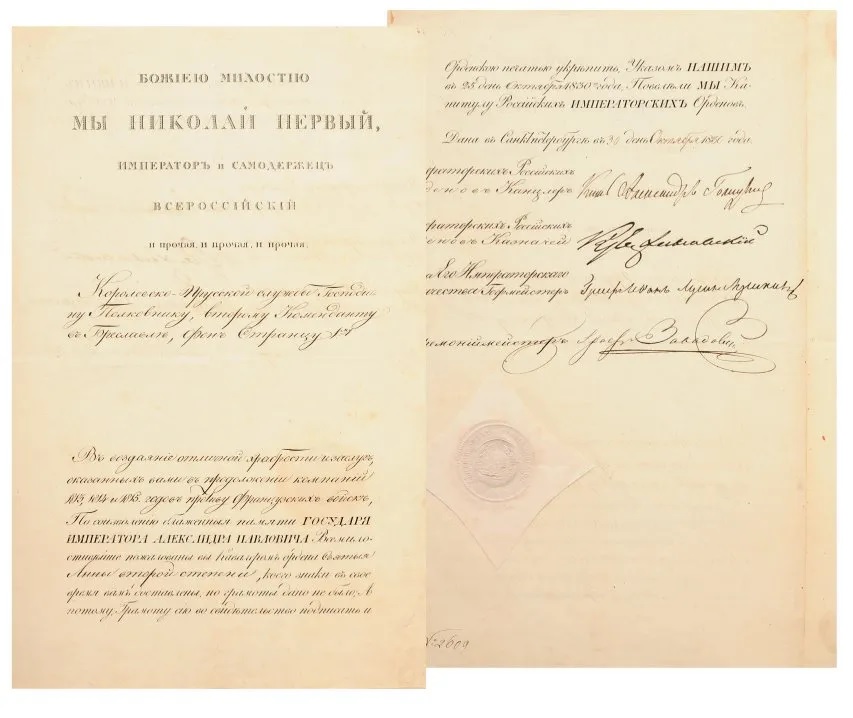 БОЖІЕЮ МИЛОСТІЮ
МЫ НИКОЛАЙ ПЕРВЫЙ,
ИМПЕРАТОРЪ и САМОДЕРЖЕЦЪ
ВСЕРОССІЙСКІЙ
и прочая, и прочая, и прочая,
Королевско-Прусской службы Господи-
ну Полковнику, второму Коменданту
въ Бреславлѣ, фонъ Странцу 1му
Въ воздаяніе отличной храбрости и заслугъ,
оказанныхъ вами въ продолженіи компаній
1813, 1814 и 1815. годовъ противу Французскихъ войскъ,
По соизволенію блаженныя памяти ГОСУДАРЯ
ИМПЕРАТОРА АЛЕКСАНДРА ПАВЛОВИЧА Всемило-
стивѣйше пожалованы вы Кавалеромъ ордена Святыя
Анны второй степени, коего знаки въ свое
время вамъ доставлены, но грамоты дано не было; А
потому Грамоту сію во свидѣтельство подписать и
Орденскою печатью укрѣпить, Указомъ НАШИМЪ
въ 25 день Октября 1830 года, Повелѣли МЫ Ка-
питулу Россійскихъ ИМПЕРАТОРСКИХЪ Орденовъ.
Дана въ Санктпетербургѣ въ день Октября года.
ераторскихъ Россійскихъ
деновъ Канцлеръ Князь Александръ Голицынъ
ераторскихъ Россійскихъ
деновъ Казначей
а Его Императорскаго
чества Гофмейстеръ
ремоніймейстеръ Графъ Завадовскій
№ 2609